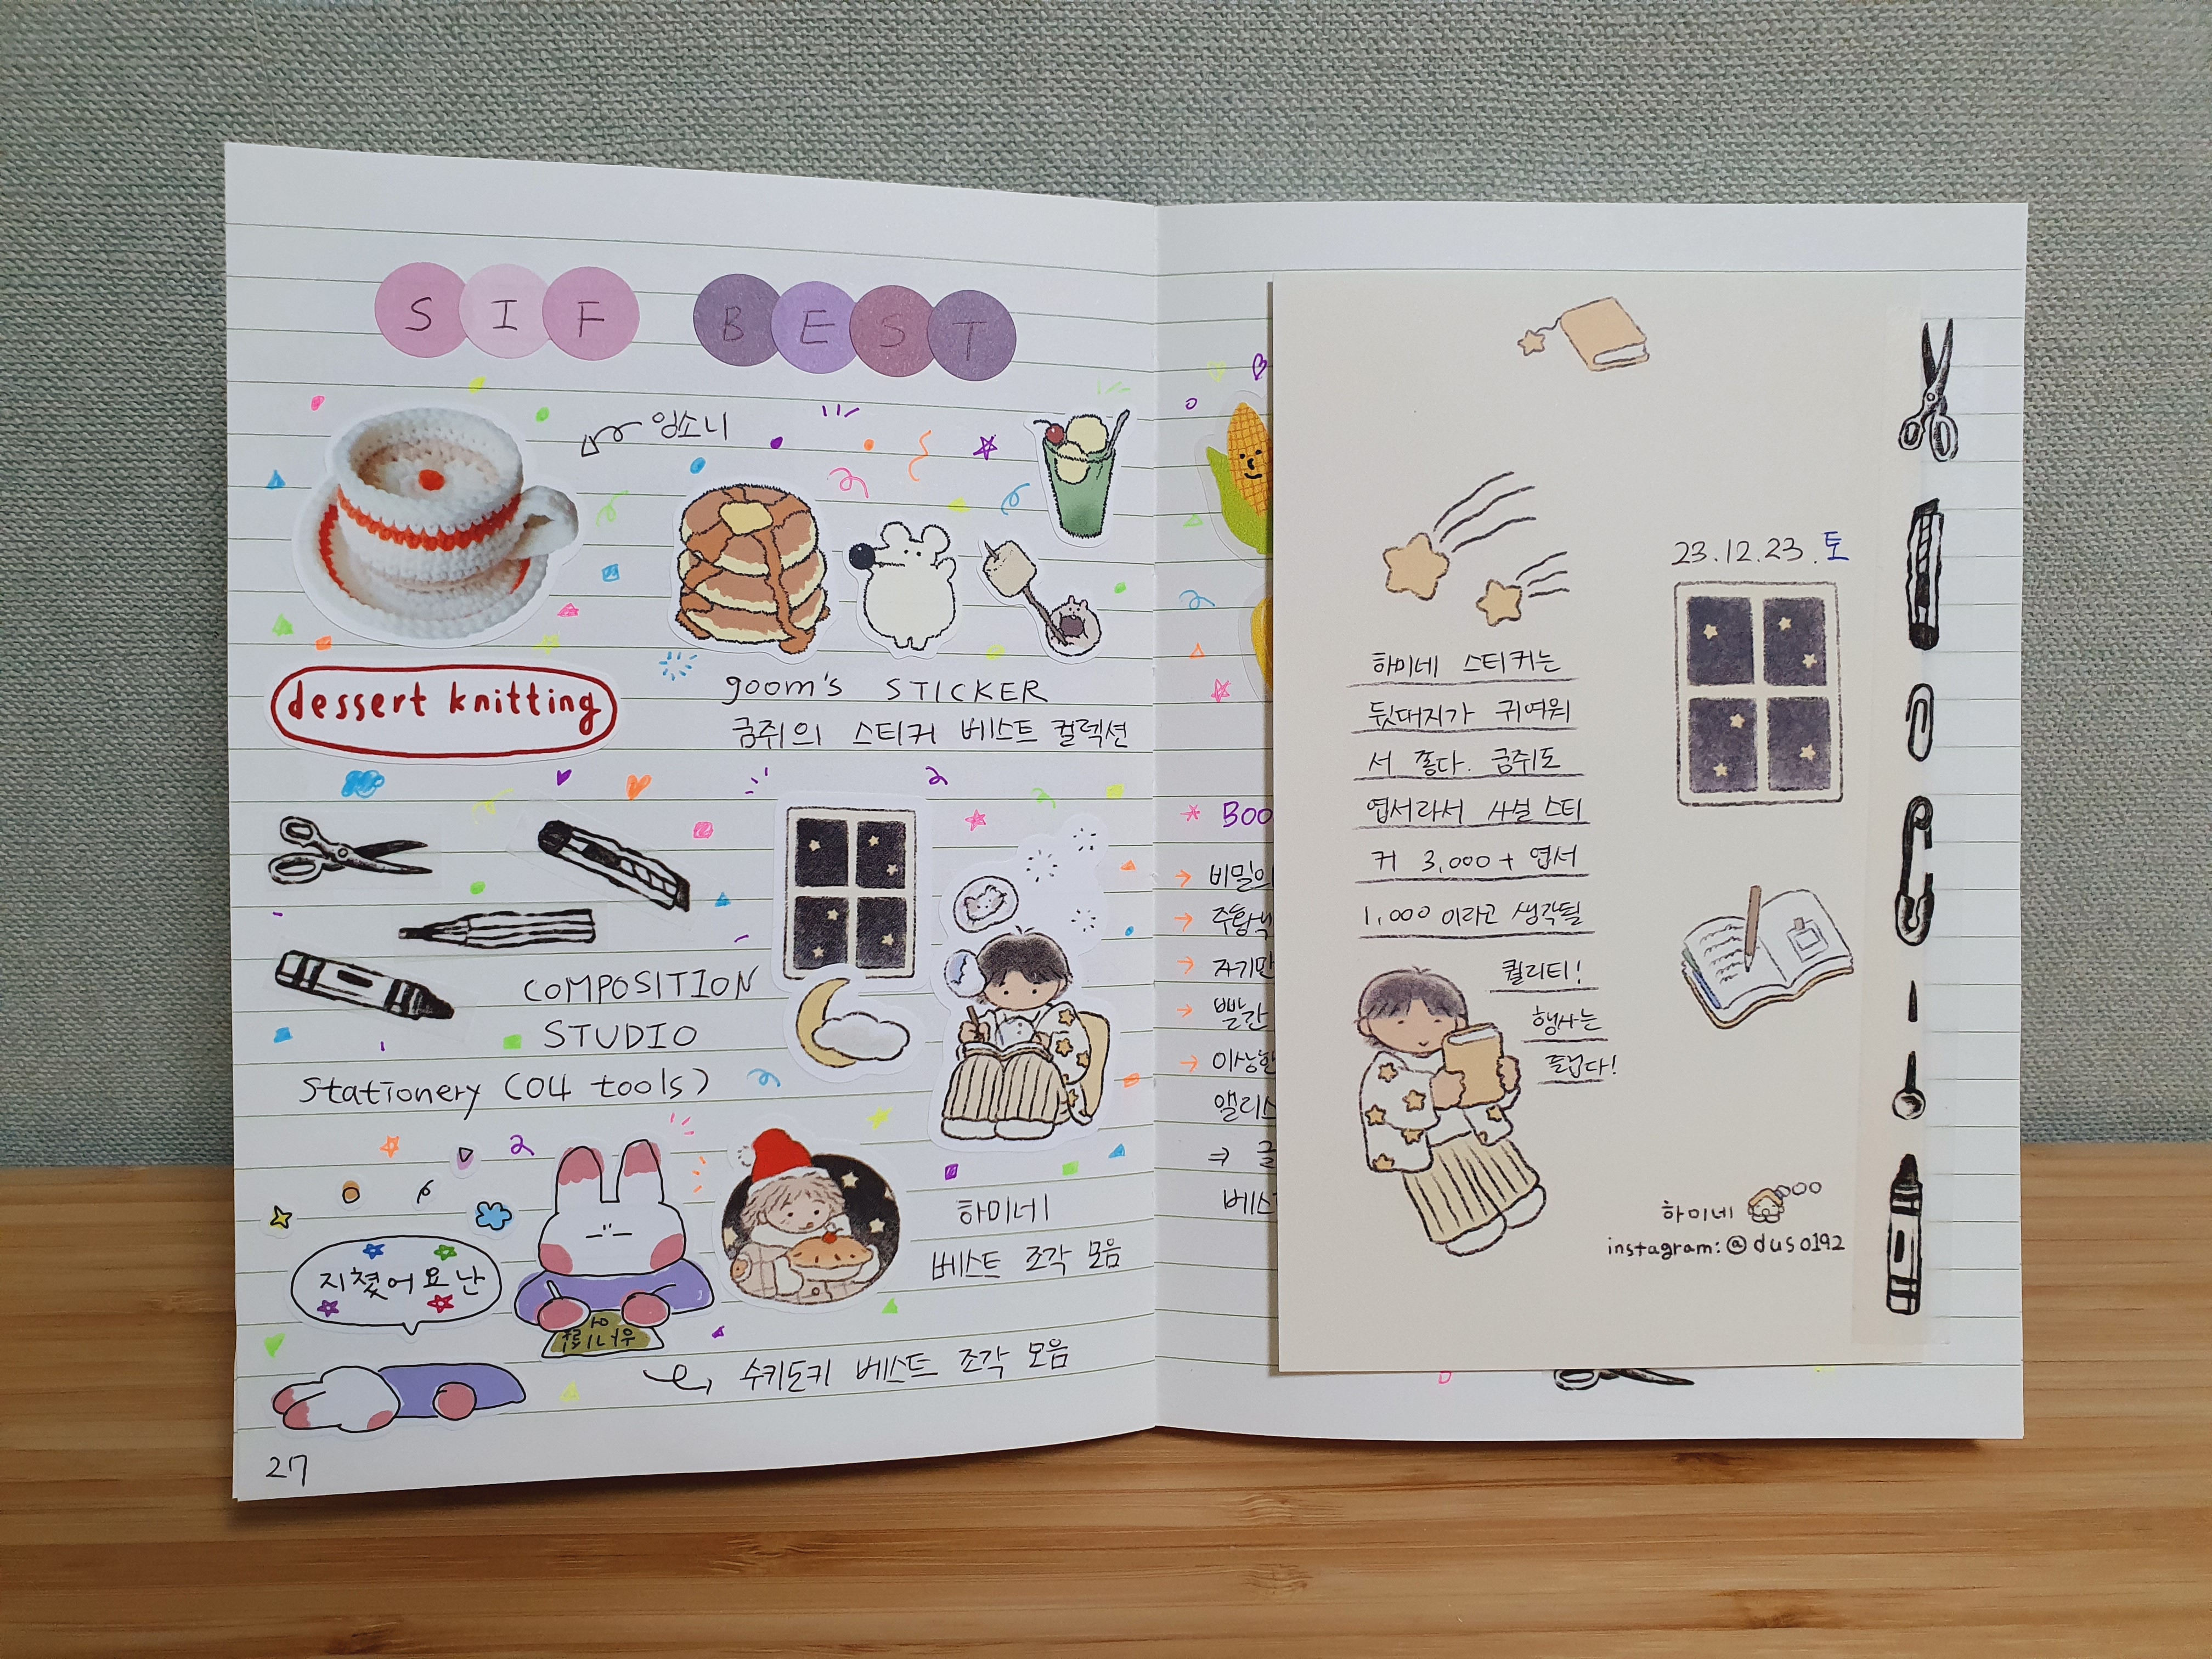 SIF BEST
잉소니
dessert knitting
goom's STICKER
굼쥐의 스티커 베스트 컬렉션
COMPOSITION
STUDIO
Stationery (04 tools)
하미네
베스트 조각 모음
지쳤어요 난
수키도키 베스트 조각 모음
27
BOO
비밀의
주황색
자기만
빨간
이상한
앨리스
⇒ 글
베스트
23.12.23.토
하미네 스티커는
뒷대지가 귀여워
서 좋다. 굼쥐도
엽서라서 사실 스티
커 3,000 + 엽서
1,000 이라고 생각될
퀄리티!
행사는
즐겁다!
하미네
instagram:@duso192